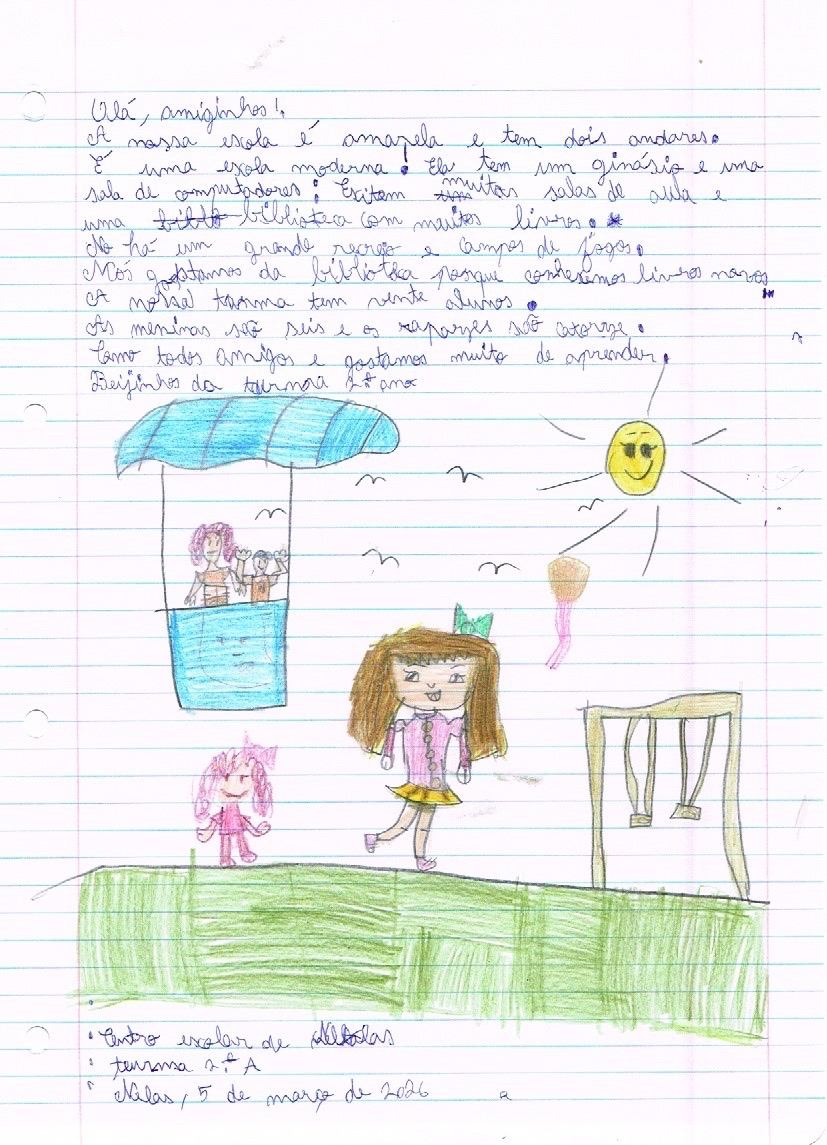 Olá, amiginhos!
A nossa escola é amarela e tem dois andares.
É uma escola moderna! Ela tem um ginásio e uma
sala de computadores! Exitem muitas salas de aula e
uma biblioteca com muitos livros.
No há um grande recreio e campos de jogos.
Nós gostamos da biblioteca porque conhecemos livros novos
A nossa turma tem vinte alunos.
As meninas são seis e os rapazes são catorze.
Somo todos amigos e gostamos muito de aprender.
Beijinhos da turma 2.º ano
Centro escolar de Nelas
turma 2.º A
Nelas, 5 de março de 2026